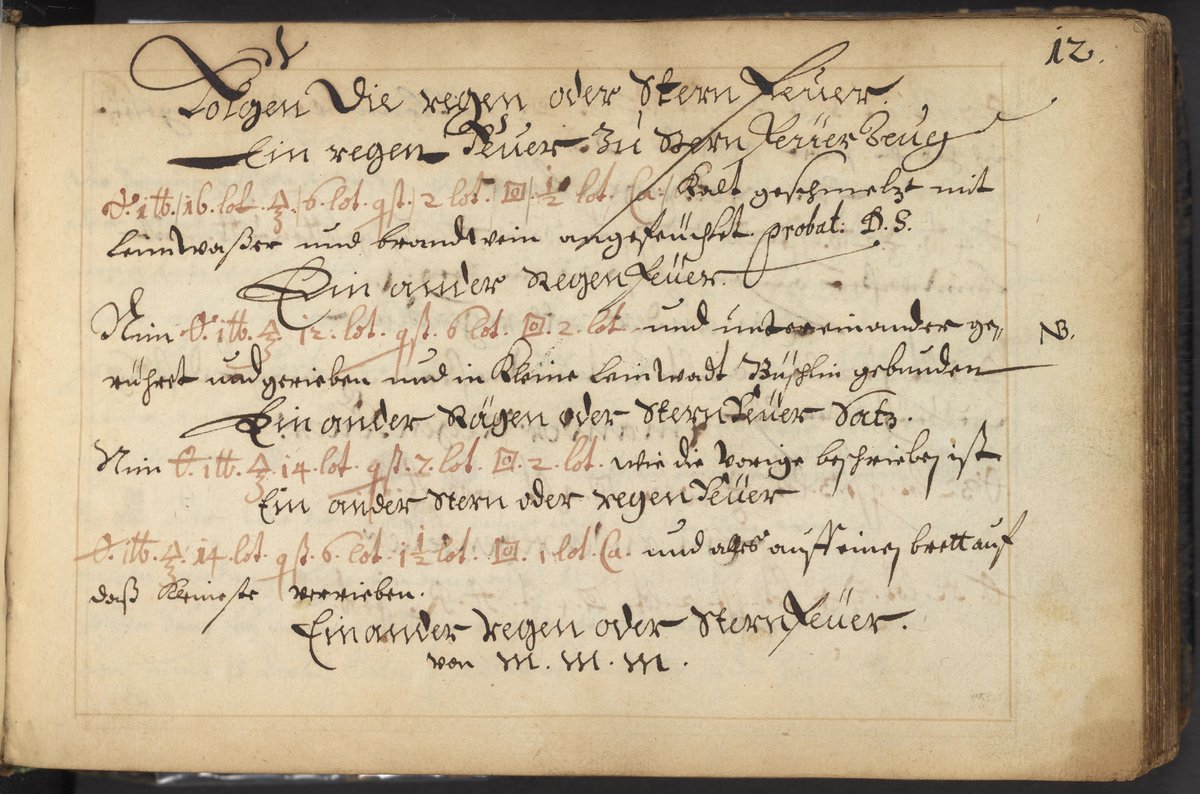 12.
Folgen Die regen oder Stern Feuer.
Ein regen Feuer zu Stern Feüer Zeug
1 tt. / 16. lot. / 6. lot. / 2 lot. / ½ lot. Ca: / Kalt geschmeltzt mit
Leimwaßer und brandtwein angefeüchtet. probat: D. S.
Ein ander Regen Feüer.
Nim 1 tt. 12. lot. 6 lot. 2. lot. und untereinander ge„
NB.
rühret und gerieben und in Kleine Leinwadt Büschlin gebunden
Ein ander Rägen oder Stern Feüer Satz.
Nim 1 tt. 14. lot. 7. lot. 2. lot. wie die vorige beschrieben ist
Ein ander Stern oder regen Feüer
1 tt. 14. lot. 6. lot 1½ lot. 1 lot. Ca. und alles auff einen brett auf
daß Kleineste verrieben.
Ein ander regen oder Stern Feüer.
von M. M. M.